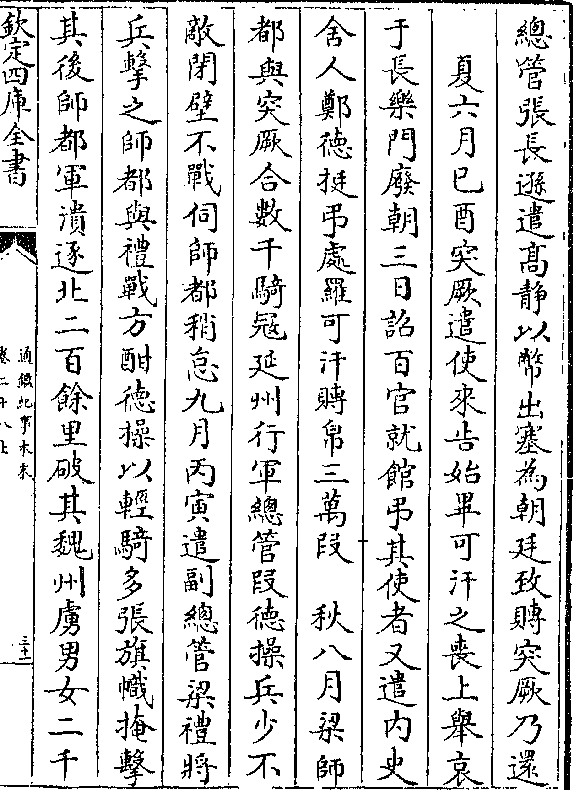 總管張長遜遣髙静以幣出塞為朝廷致賻突厥乃還
夏六月己酉突厥遣使來告始畢可汗之喪上舉哀
于長樂門廢朝三日詔百官就館弔其使者又遣内史
舍人鄭德挺弔處羅可汗賻帛三萬段 秋八月梁師
都與突厥合數千騎冦延州行軍總管段德操兵少不
敵閉壁不戰伺師都稍怠九月丙寅遣副總管梁禮將
兵擊之師都與禮戰方酣德操以輕騎多張旗幟掩擊
其後師都軍潰逐北二百餘里破其魏州虜男女二千
欽定四庫全書
通鑑紀事本末
卷二十八上
三十一